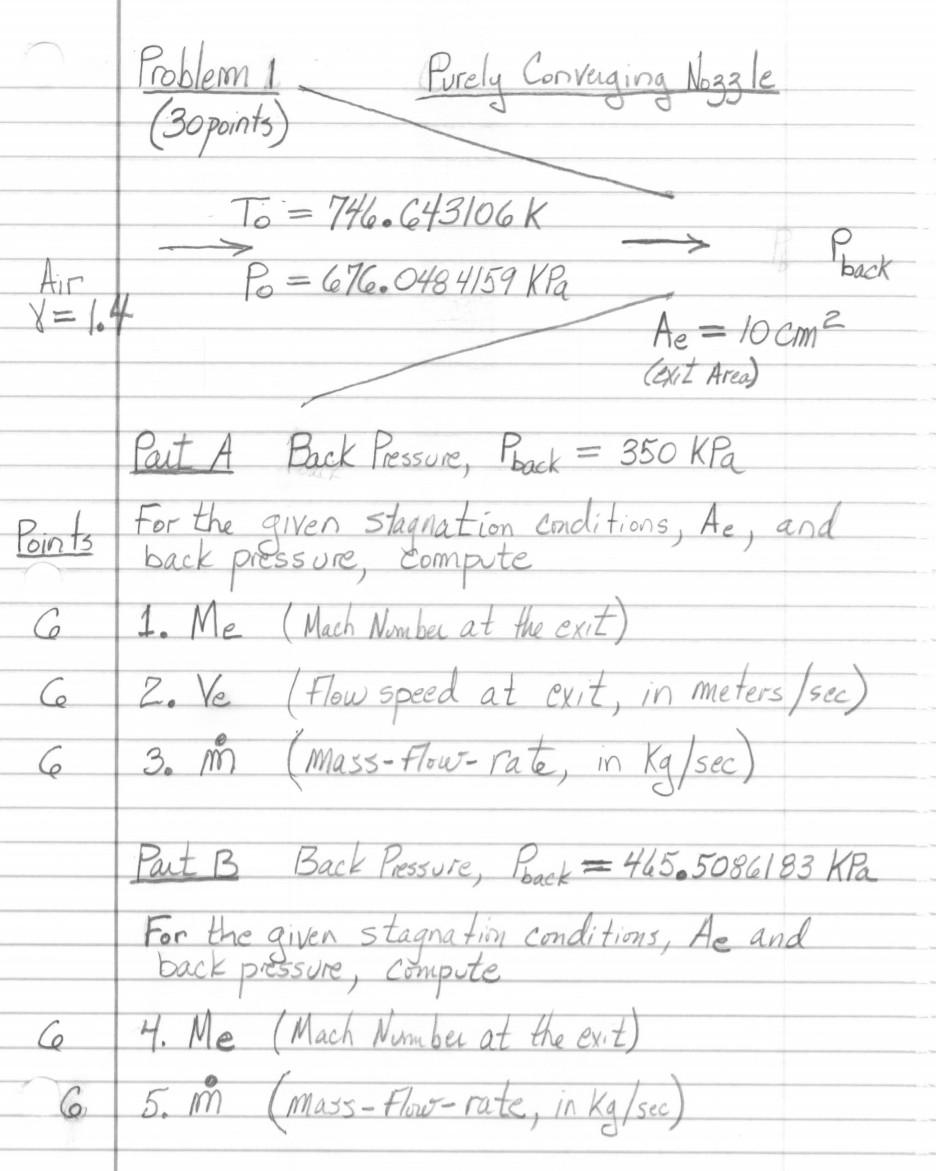 Problem 1 Purely Converging Nozzle
(30 points)
To = 746.643106 K
Po = 676.0484159 KPa
Pback
Air
γ = 1.4
Ae = 10 cm²
(exit Area)
Part A Back Pressure, Pback = 350 KPa
Points
For the given stagnation conditions, Ae, and
back pressure, compute
6 1. Me (Mach Number at the exit)
6 2. Ve (Flow speed at exit, in meters/sec)
6 3. ṁ (mass-flow-rate, in Kg/sec)
Part B Back Pressure, Pback = 465.5086183 KPa
For the given stagnation conditions, Ae and
back pressure, compute
6 4. Me (Mach Number at the exit)
6 5. ṁ (mass-flow-rate, in Kg/sec)